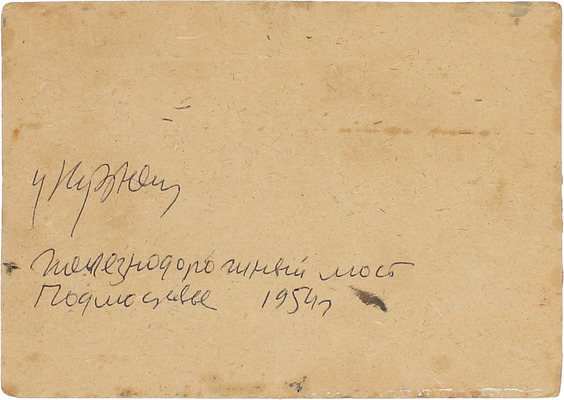 Железнодорожный мост
Подмосковье 1954г